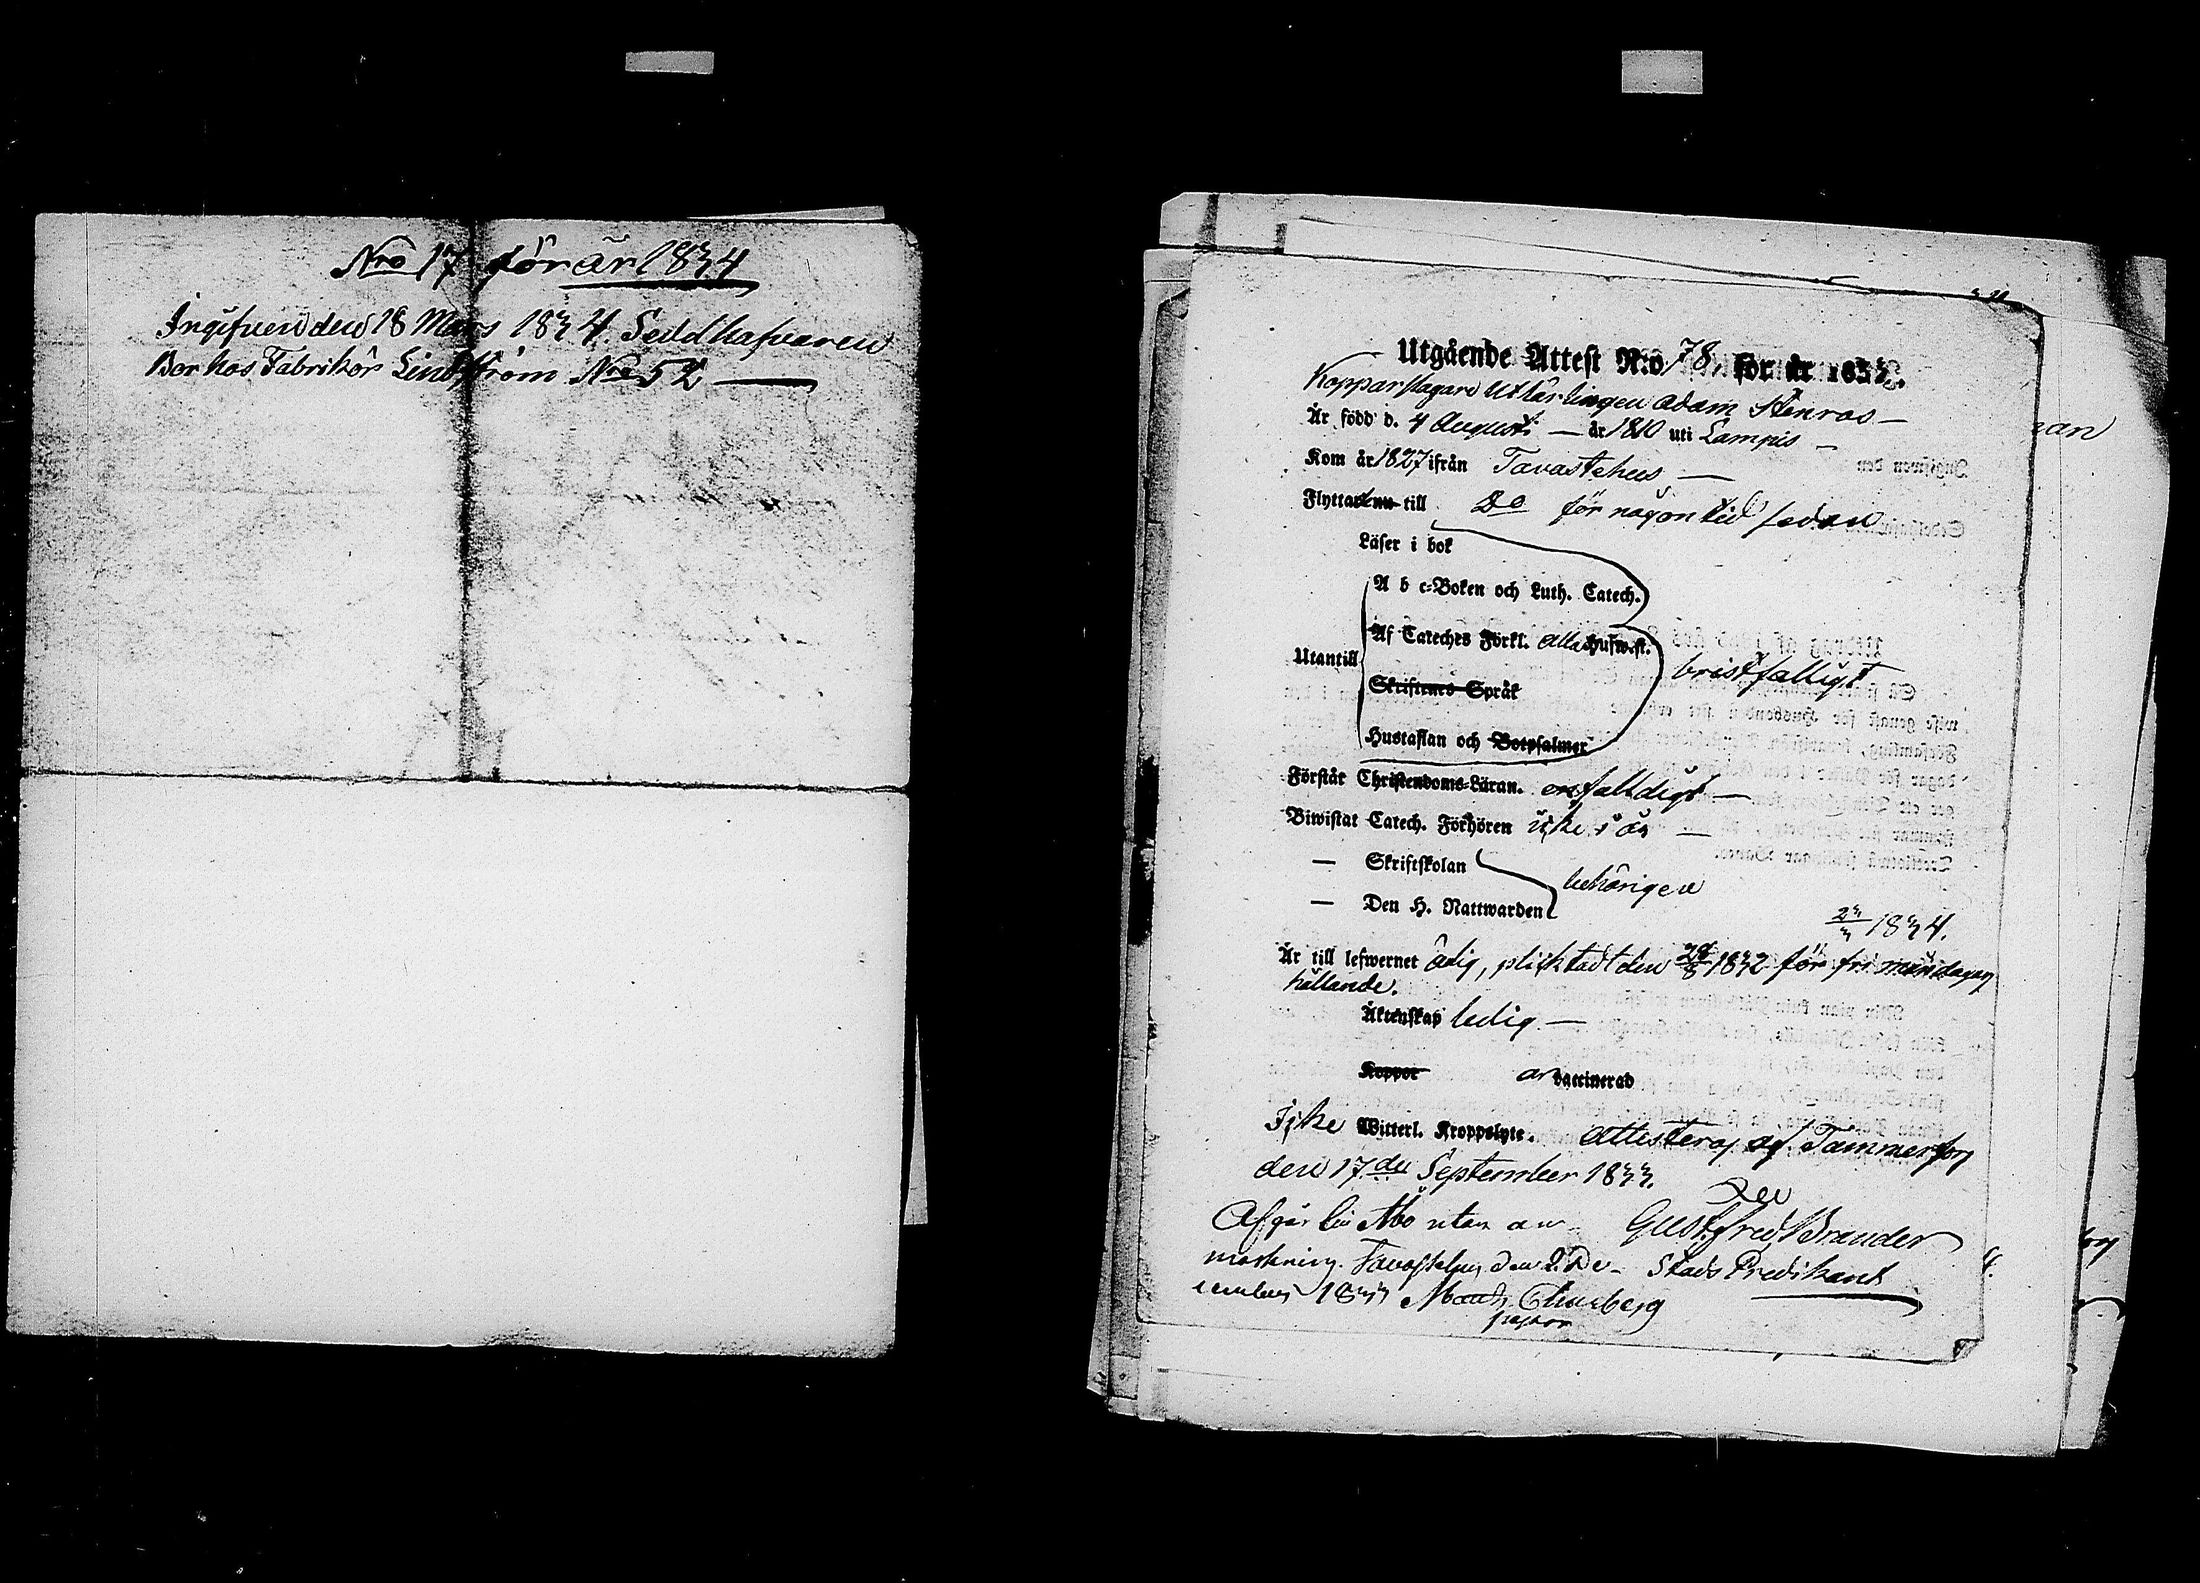 Nro 17 för år 1834
Ingifven den 18 Mars 1834. Seddhafvaren
Bor hos Fabrikör Lindström Nro 52
Utgående Attest N:o 78, för år 1833.
Kopparslagare Utlärlingen Adam Stenros
Är född d. 4 Augusti — år 1810 uti Lampis —
Kom år 1827 ifrån Tavastehus —
Flyttade till Do för någon tid sedan
Läser i bok
A b c-Boken och Luth. Catech.
Af Cateches Förkl. alla hufwst.
Utantill
bristfälligt
Skriftenes Språk
Hustaflan och Botpsalmer
Förstår Christendoms-Läran. enfalldigt —
Biwistat Catech. Förhören icke i år —
— Skriftskolan
behörigen
— Den H. Nattwarden
1834.
Är till lefwernet ärlig, pliktadt den 28/8 1832 för fri måndagars
hållande.
Äktenskap ledig —
Koppor vaccinerad
Icke Witterl. Kroppslyte. Attesteras af Tammerfors
den 17de September 1833.
Afgår till Åbo utan an-
Gust. Fred. Brander
märkning. Tavastehus den 2 De-
Stads Predikant
cember 1833
pastor